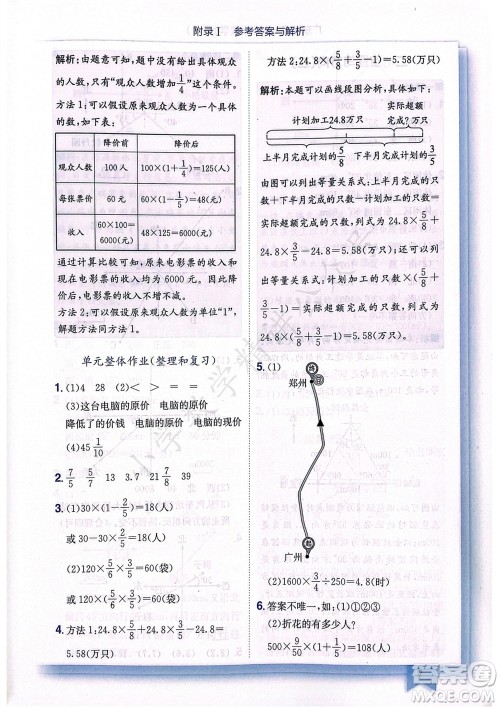 附录Ⅰ 参考答案与解析
解析:由题意可知,题中没有给出具体观众
的人数,只有“观众人数增加1/4”这个条件。
方法1:可以假设原来观众人数为100人,
数据如下表:
降价前 降价后
观众人数 100人 100×(1+1/4)=125(人)
每张票价 60元 60×(1-1/5)=48(元)
收入 60×100=6000(元) 48×125=6000(元)
通过计算比较可知,原来电影票的收入和
现在电影票的收入均为6000元。因此,降
价后,电影票的收入没有变化。
方法2:可以假设原观众人数为单位“1”,
解题方法同方法1。
单元整体作业(整理和复习)
1.(1)4 28 (2)< > = =
(3)这台电脑的原价 电脑的原价
降低了的价钱 电脑的原价 电脑的现价
(4)45 1/10
2. 7/5 5/7 13 3.7 21 7/8 39
3.(1)30×(1-2/5)=18(人)
或30-30×2/5=18(人)
(2)120×5/6×3/5=60(袋)
或120×(5/6×3/5)=60(袋)
4.方法1:24.8×5/8+24.8×3/5-24.8=
5.58(万只)
方法2:24.8×(5/8+3/5-1)=5.58(万只)
解析:本题可以画线段图分析,具体如下:
实际超额
计划加工24.8万只 完成?万只
上半月完成计划的5/8 下半月完成计划的3/5
由图可以列出等量关系式:上半月完成的只
数+下半月完成的只数-计划加工的只数=
实际超额完成的只数,列式为24.8×5/8+
24.8×3/5-24.8=5.58(万只)。还可以列
出等量关系式:计划加工的只数×超额完成
的分率=实际超额完成的只数,列式为
24.8×(5/8+3/5-1)=5.58(万只)。
5.(1)
郑州
广州
(2)1600×3/4÷250=4.8(时)
6.答案不唯一,如:(1)①②③
(2)折花的有多少人?
500×9/10×(1-1/3)=300(人)
小学数学
答案圈
MXQE.COM